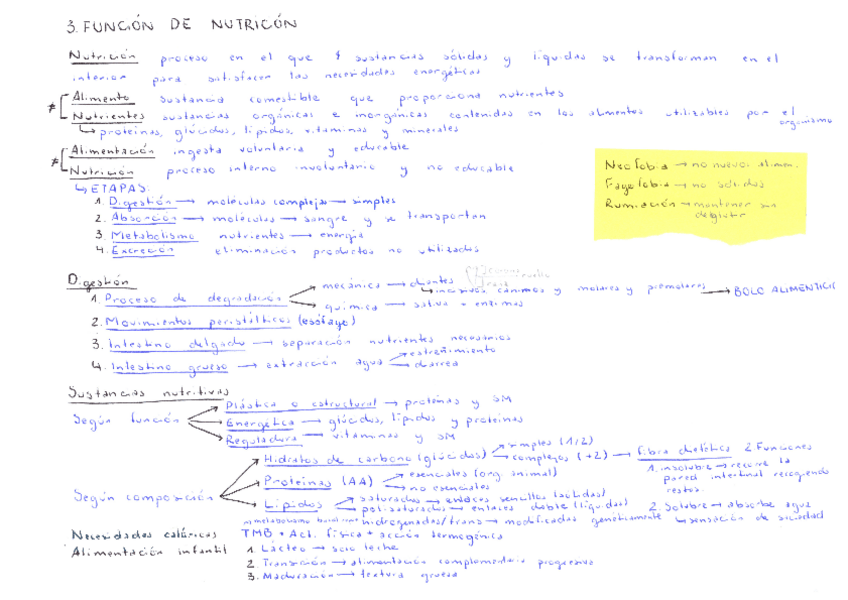 3. FUNCIÓN DE NUTRICÓN
Nutrición proceso en el que 4 sustancias sólidas y líquidas se transforman en el
interior para satisfacer las necesidades energéticas
≠ Alimento sustancia comestible que proporciona nutrientes
Nutrientes sustancias orgánicas e inorgánicas contenidas en los alimentos utilizables por el organismo
↳ proteínas, glúcidos, lípidos, vitaminas y minerales
≠ Alimentación ingesta voluntaria y educable
Nutrición proceso interno involuntario y no educable
↳ ETAPAS:
1. Digestión → moléculas complejas → simples
2. Absorción → moléculas → sangre y se transportan
3. Metabolismo nutrientes → energía
4. Excreción eliminación productos no utilizados
Neofobia → no nuevos alimen.
Fagofobia → no sólidos
Rumiación → mantener sin
deglutir
Digestión
1. Proceso de degradación → mecánica → dientes
↳ incisivos caninos y molares y premolares → BOLO ALIMENTICIO
→ química → saliva + enzimas
2. Movimientos peristálticos (esófago)
3. Intestino delgado → separación nutrientes necesarios
4. Intestino grueso → extracción agua → estreñimiento
→ diarrea
Sustancias nutritivas
Según función → Plástica o estructural → proteínas y SM
→ Energética → glúcidos, lípidos y proteínas
→ Reguladora → vitaminas y SM
Según composición → Hidratos de carbono (glúcidos) → simples (1/2)
→ complejos (+2) → fibra dietética 2 Funciones
1. insoluble → recorre la
pared intestinal recogiendo
restos.
2. Soluble → absorbe agua
↳ sensación de saciedad
→ Proteínas (AA) → esenciales (org. animal)
→ no esenciales
→ Lípidos → saturados → enlaces sencillos (sólidas)
→ poli-saturados → enlaces doble (líquidas)
hidrogenadas/trans → modificadas genéticamente
Necesidades calóricas TMB + Act. física + acción termogénica
Alimentación infantil 1. Lácteo → solo leche
2. Transición → alimentación complementaria progresiva
3. Maduración → textura gruesa